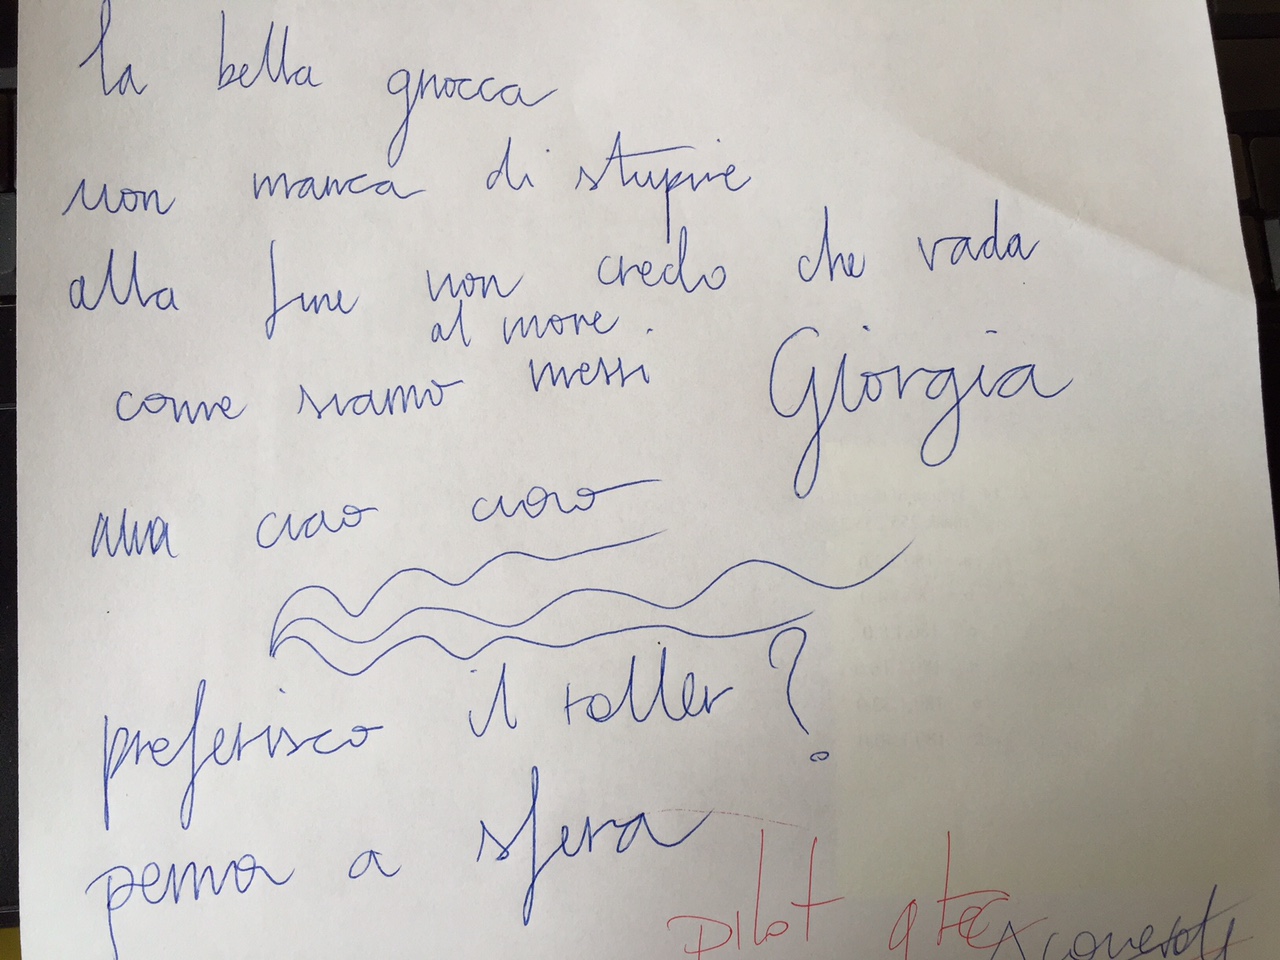 la bella gnocca
non manca di stupire
alla fine non credo che vada
al mare.
come siamo messi Giorgia
ciao
preferisco il roller?
penna a sfera
pilot